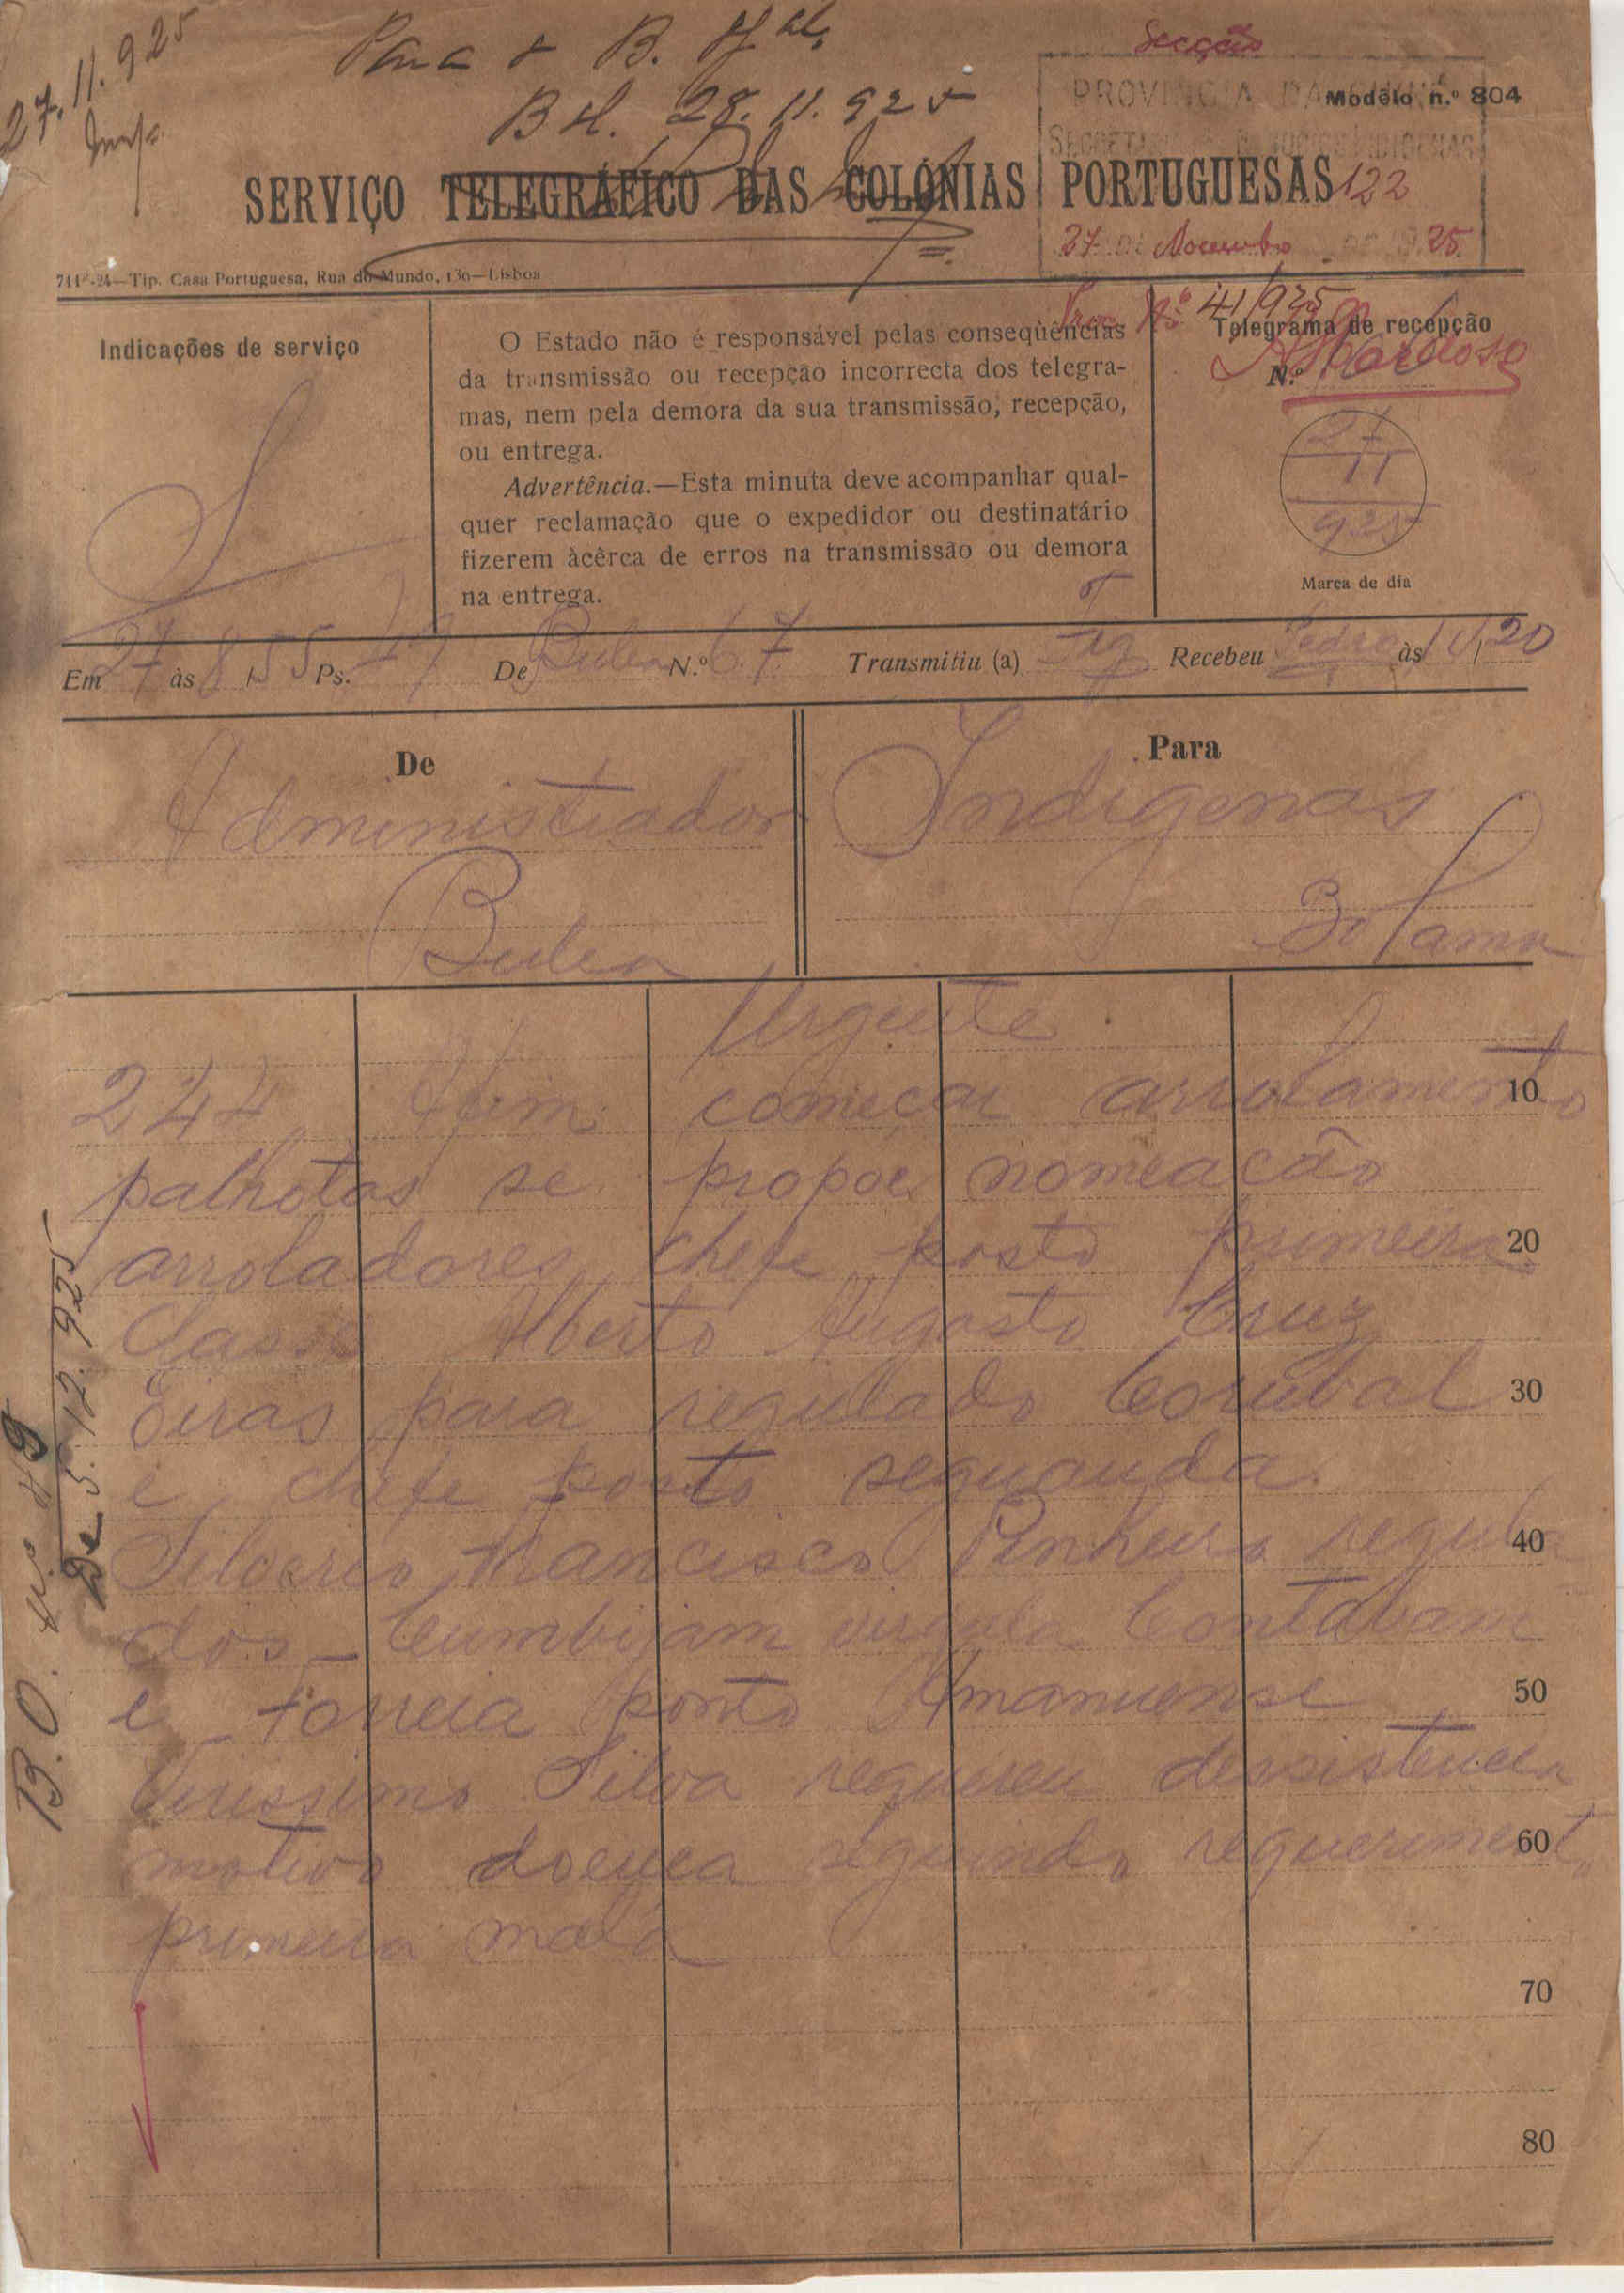 27.11.925
Para o B. Of.al
Bol. 28.11.925
Secção
PROVINCIA DA GUINÉ
Modêlo n.º 804
SECRETARIA DOS NEGOCIOS INDIGENAS
SERVIÇO TELEGRÁFICO DAS COLÓNIAS PORTUGUESAS
122
27 de Novembro de 1925
Tip. Casa Portuguesa, Rua do Mundo, 130—Lisboa
Nº 41/925
Indicações de serviço
O Estado não é responsável pelas conseqüências
da transmissão ou recepção incorrecta dos telegra-
mas, nem pela demora da sua transmissão, recepção,
ou entrega.
Advertência.—Esta minuta deve acompanhar qual-
quer reclamação que o expedidor ou destinatário
fizerem àcêrca de erros na transmissão ou demora
na entrega.
Telegrama de recepção
N.º
Cardoso
27
11
925
Marca de dia
Em 27 às 8,55 Ps. 47 De Buba N.º 67 Transmitiu (a) Recebeu Pedro às 10,20
De
Administrador
Buba
Para
Indigenas
Bolama
Urgente
244 fim começar arrolamento 10
palhotas se propoe nomeação
arroladores chefe posto primeira 20
classe Alberto Augosto Cruz
Eiras para regulado Corubal 30
e chefe posto seguauda
Silverio Francisco Pinheiro regula 40
dos Cumbijam virgula Contabane
e Forreia ponto Amanuense 50
Virissimo Silva requereu dessistencia
motivo doença seguindo requerimento 60
primeira mala
70
80
B.O. nº 49
De 5.12.925